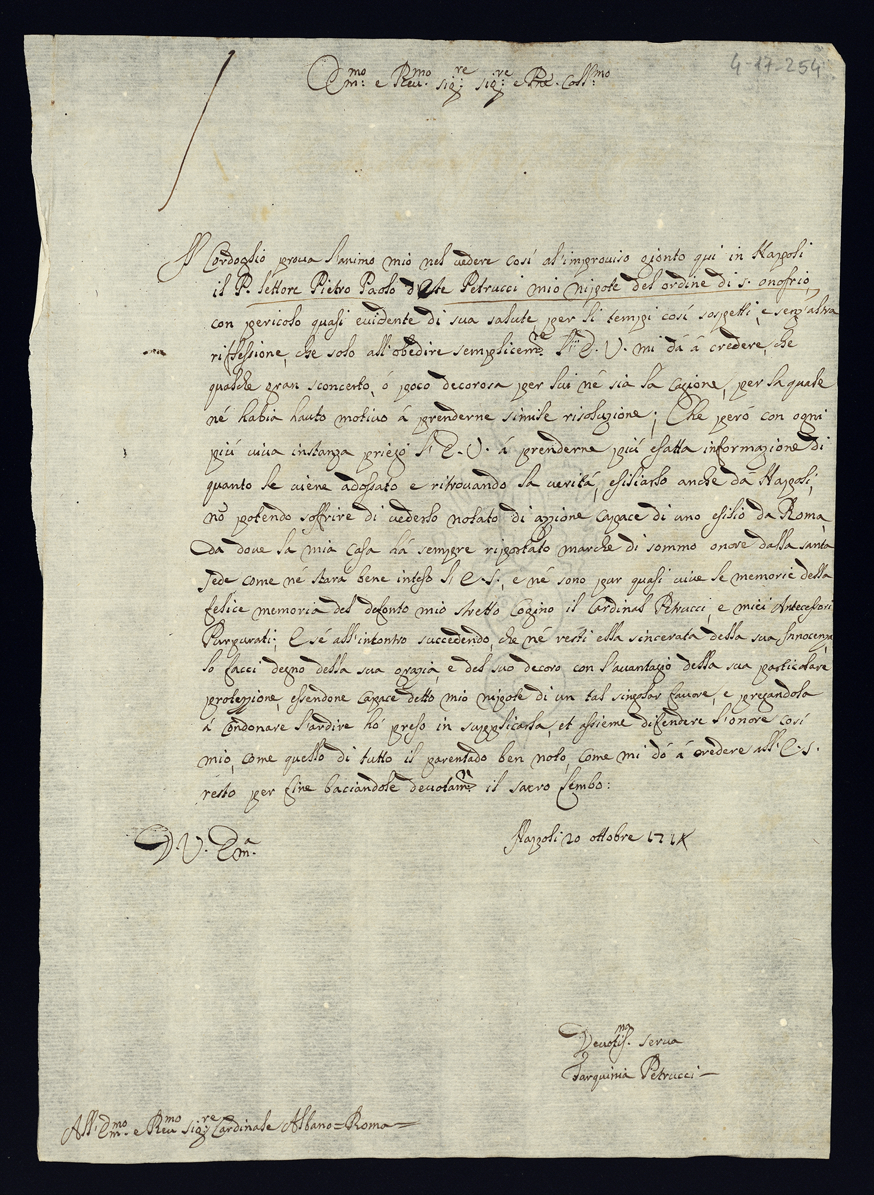 4-17-254
Em.mo e Reu.mo Sig.re Sig.re e Pne Coll.mo
Cordoglio proua l'animo mio nel uedere così al'improuiso gionto qui in Nappoli
il P. lettore Pietro Paolo d'Este Petrucci mio nipote del ordine di s. onofrio,
con pericolo quasi euidente di sua salute, per li tempi così sospetti, e senz'altra
riflessione, che solo all'obedire semplicem.te l'E. V. mi dà à credere, che
qualche gran sconcerto, ò poco decorosa per lui né sia la cagione, per la quale
né habia hauto motiuo à prenderne simile risoluzione; Che però con ogni
più uiua instanza priego l'E. V. à prenderne più esatta informazione di
quanto le uiene adossato e ritrouando la uerità, essiliarlo anche da Nappoli,
nō potendo soffrire di uederlo notato di azzione capace di uno essilio da Roma,
da doue la mia casa hà sempre riportato marche di sommo onore dalla santa
sede come né starà bene inteso l'E. S., e né sono par quasi uiue le memorie della
felice memoria del defonto mio stretto Cogino il Cardinal Petrucci, e miei Antecessori
Purpurati; E sé all'incontro succedendo, che né resti ella sincerata della sua Innocenza
lo facci degno della sua grazia, e del suo decoro con l'auantagio della sua particolare
protezzione, essendone capace detto mio nipote di un tal singolar fauore, e pregandola
à condonare l'ardire hò preso in supplicarla, et assieme difendere l'onore così
mio, come quello di tutto il parentado ben noto, come mi dò à credere all'E. S.
resto per fine baciandole deuotam.te il sacro lembo:
D V. Em.a
Nappoli 20 ottobre
Deuotis.ma serua
Tarquinia Petrucci
All'Em.mo e Reu.mo Sig.re Cardinale Albano = Roma =